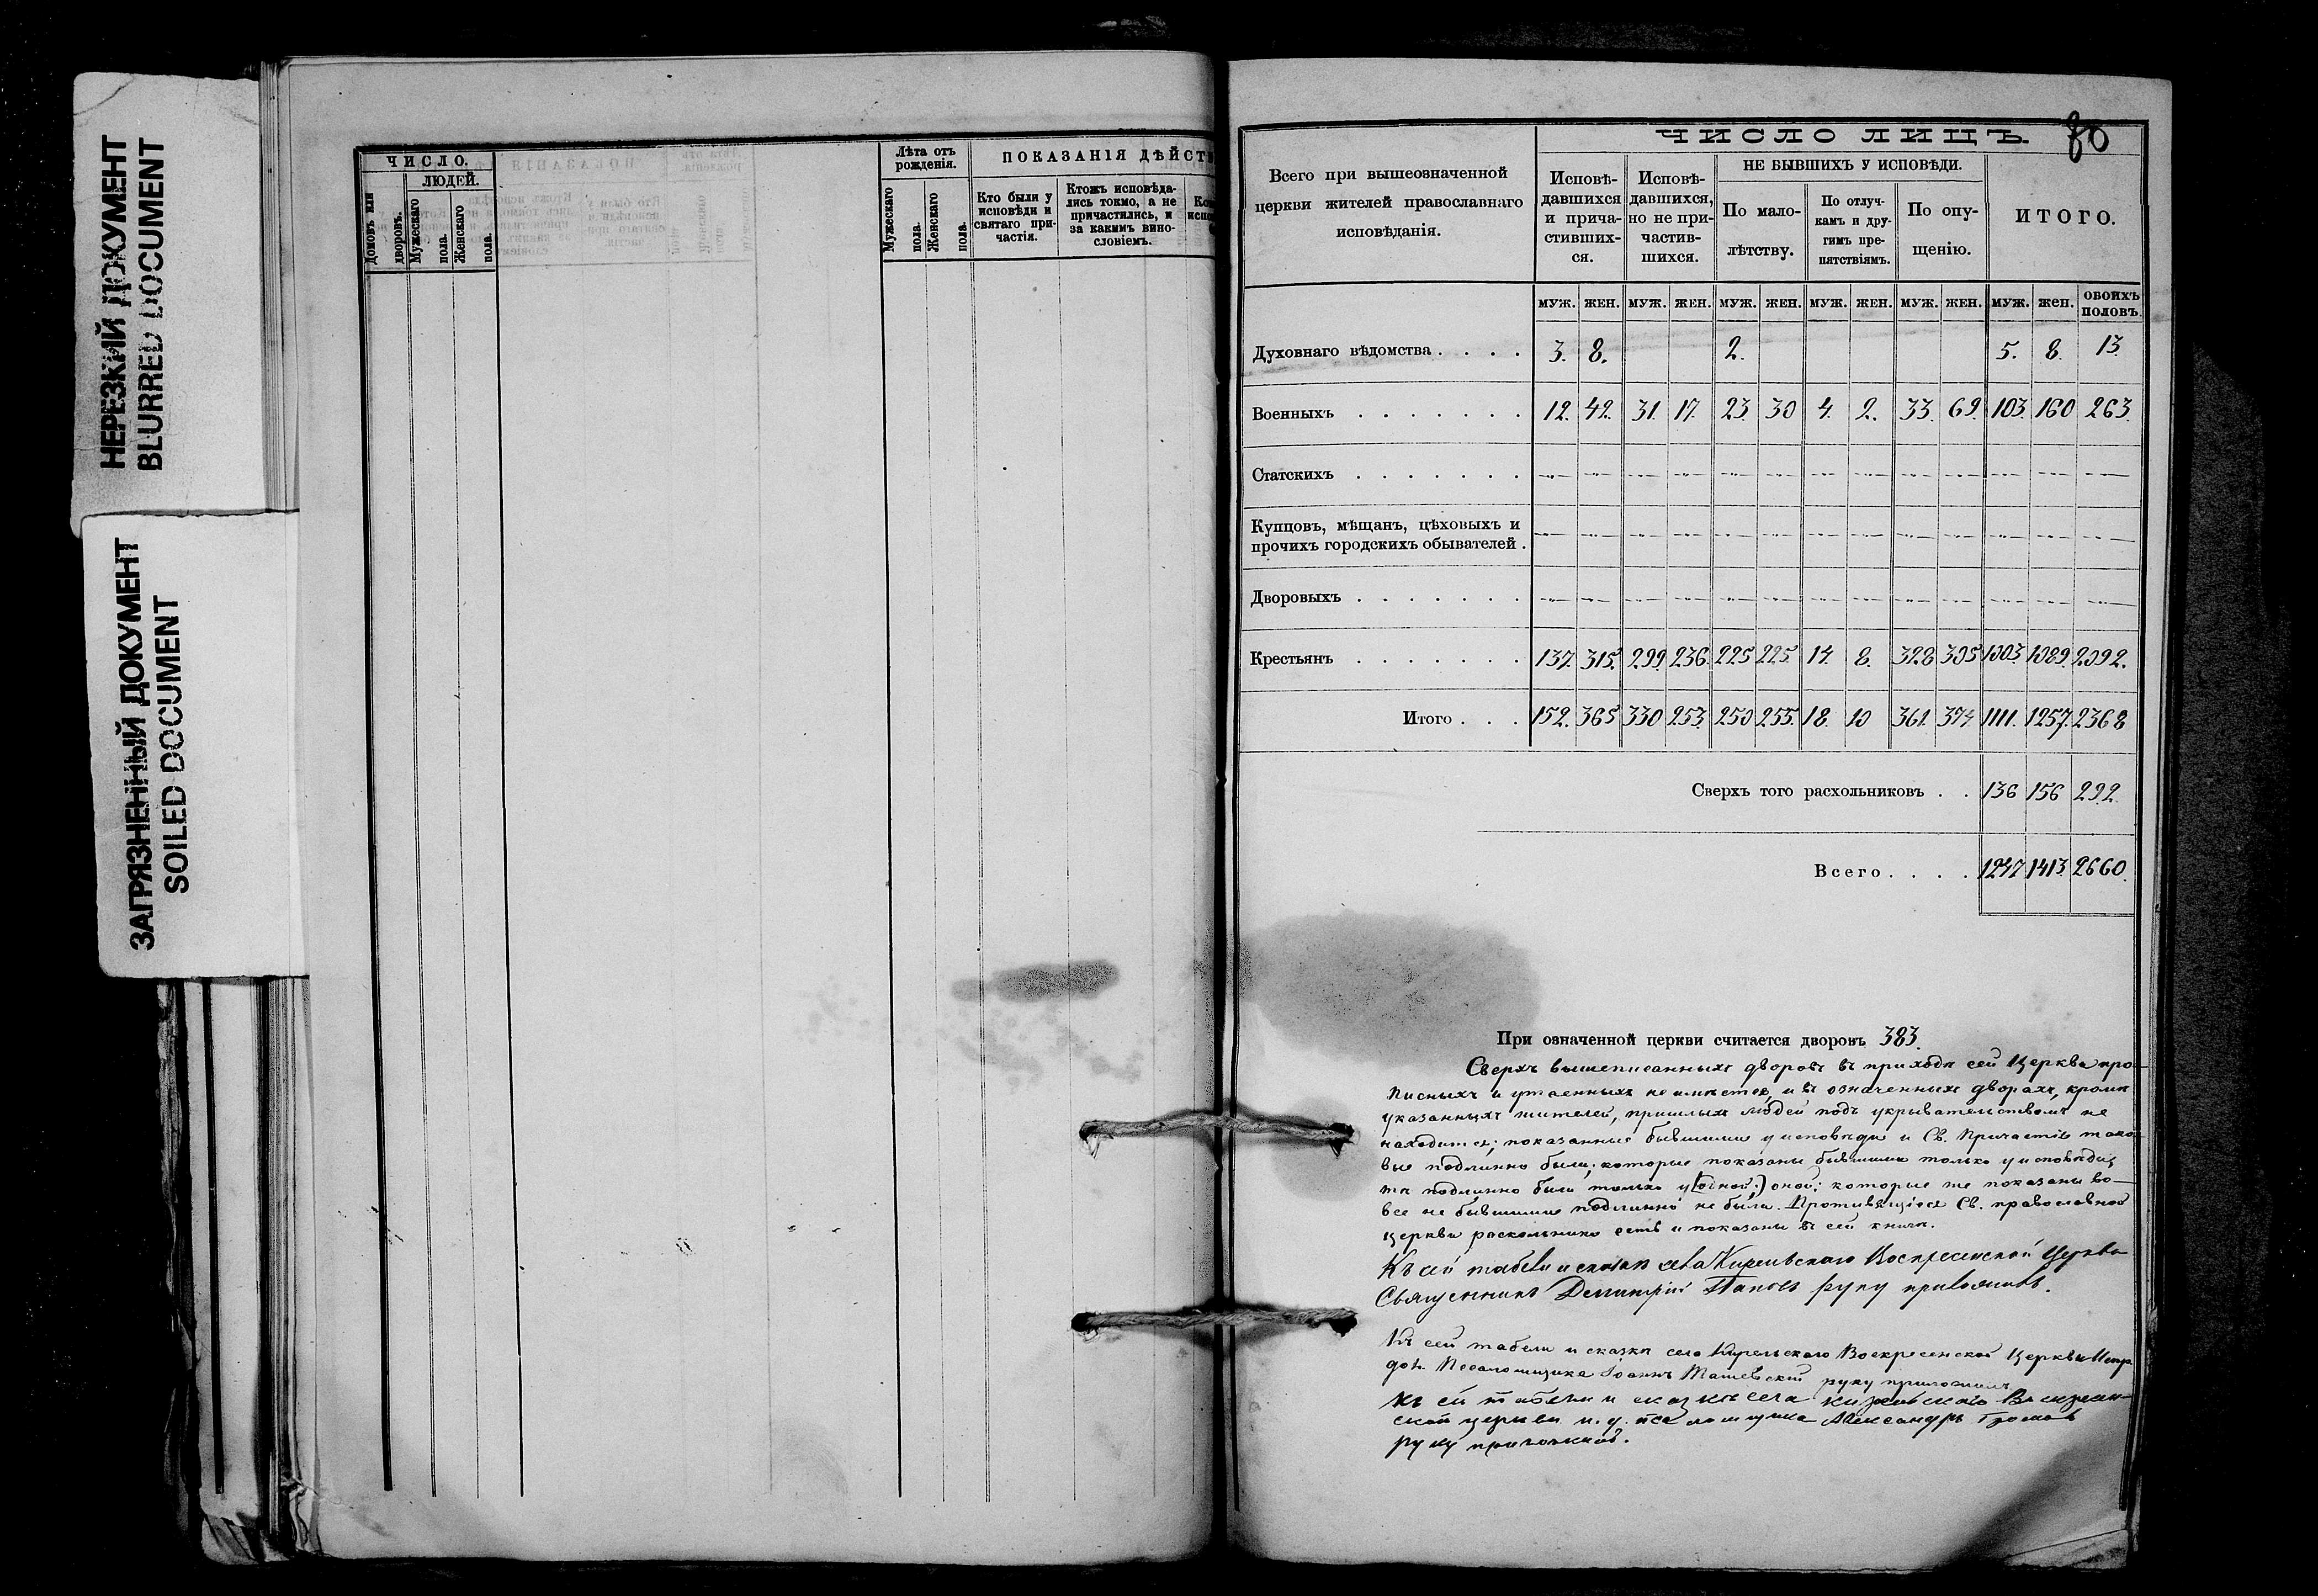 НЕРЕЗКИЙ ДОКУМЕНТ
BLURRED DOCUMENT
ЗАГРЯЗНЕННЫЙ ДОКУМЕНТ
SOILED DOCUMENT
ЧИСЛО.
ЛЮДЕЙ.
Домовъ или дворовъ.
Мужескаго пола.
Женскаго пола.
Лѣта отъ рожденія.
Мужескаго пола.
Женскаго пола.
ПОКАЗАНІЯ ДѢЙСТ
Кто были у исповѣди и святаго причастія.
Ктожъ исповѣдались токмо, а не причастились, и за какимъ винословіемъ.
80
ЧИСЛО ЛИЦЪ.
Всего при вышеозначенной
церкви жителей православнаго
исповѣданія.
Исповѣдавшихся и причастившихся.
Исповѣдавшихся, но не причастившихся.
НЕ БЫВШИХЪ У ИСПОВѢДИ.
По малолѣтству.
По отлучкамъ и другимъ препятствіямъ.
По опущенію.
ИТОГО.
муж. жен. муж. жен. муж. жен. муж. жен. муж. жен. муж. жен. обоихъ половъ.
Духовнаго вѣдомства . . . . 3. 8. 2. 5. 8. 13.
Военныхъ . . . . . . . 12. 42. 31. 17. 23. 30 4. 2. 33. 69. 103. 160 263.
Статскихъ . . . . . . .
Купцовъ, мѣщанъ, цѣховыхъ и
прочихъ городскихъ обывателей .
Дворовыхъ . . . . . . .
Крестьянъ . . . . . . . 137. 315. 299. 236. 225 225. 14. 8. 328 305 1003. 1089. 2092.
Итого . . . 152. 365 330 253. 250 255. 18. 10 361. 374 1111. 1257. 2368
Сверхъ того расхольниковъ . . 136 156 292.
Всего . . . . 1247 1413. 2660.
При означенной церкви считается дворовъ 383.
Сверхъ вышеписанныхъ дворовъ въ приходѣ сей Церкви про-
писныхъ и утаенныхъ не имѣется, и въ означенныхъ дворахъ, кромѣ
указанныхъ жителей, пришлыхъ людей подъ укрывательствомъ не
находится; показанные бывшими у исповѣди и Св. Причастія тако-
вые подлинно были; которые показаны бывшими только у исповѣди,
тѣ подлинно были только у (одной;) оной; которые же показаны во-
все не бывшими подлинно не были. Противящіеся Св. православной
церкви раскольники есть и показаны въ сей книгѣ.
Къ сей табели и сказкѣ села Воскресенской Церкви
Священникъ Димитрій Поповъ руку приложилъ.
Къ сей табели и сказкѣ села Воскресенской Церкви
Псаломщика Іоаннъ руку приложилъ
Къ сей табели и сказкѣ села Воскресен-
ской церкви и. д. псаломщика Александръ Громовъ
руку приложилъ.